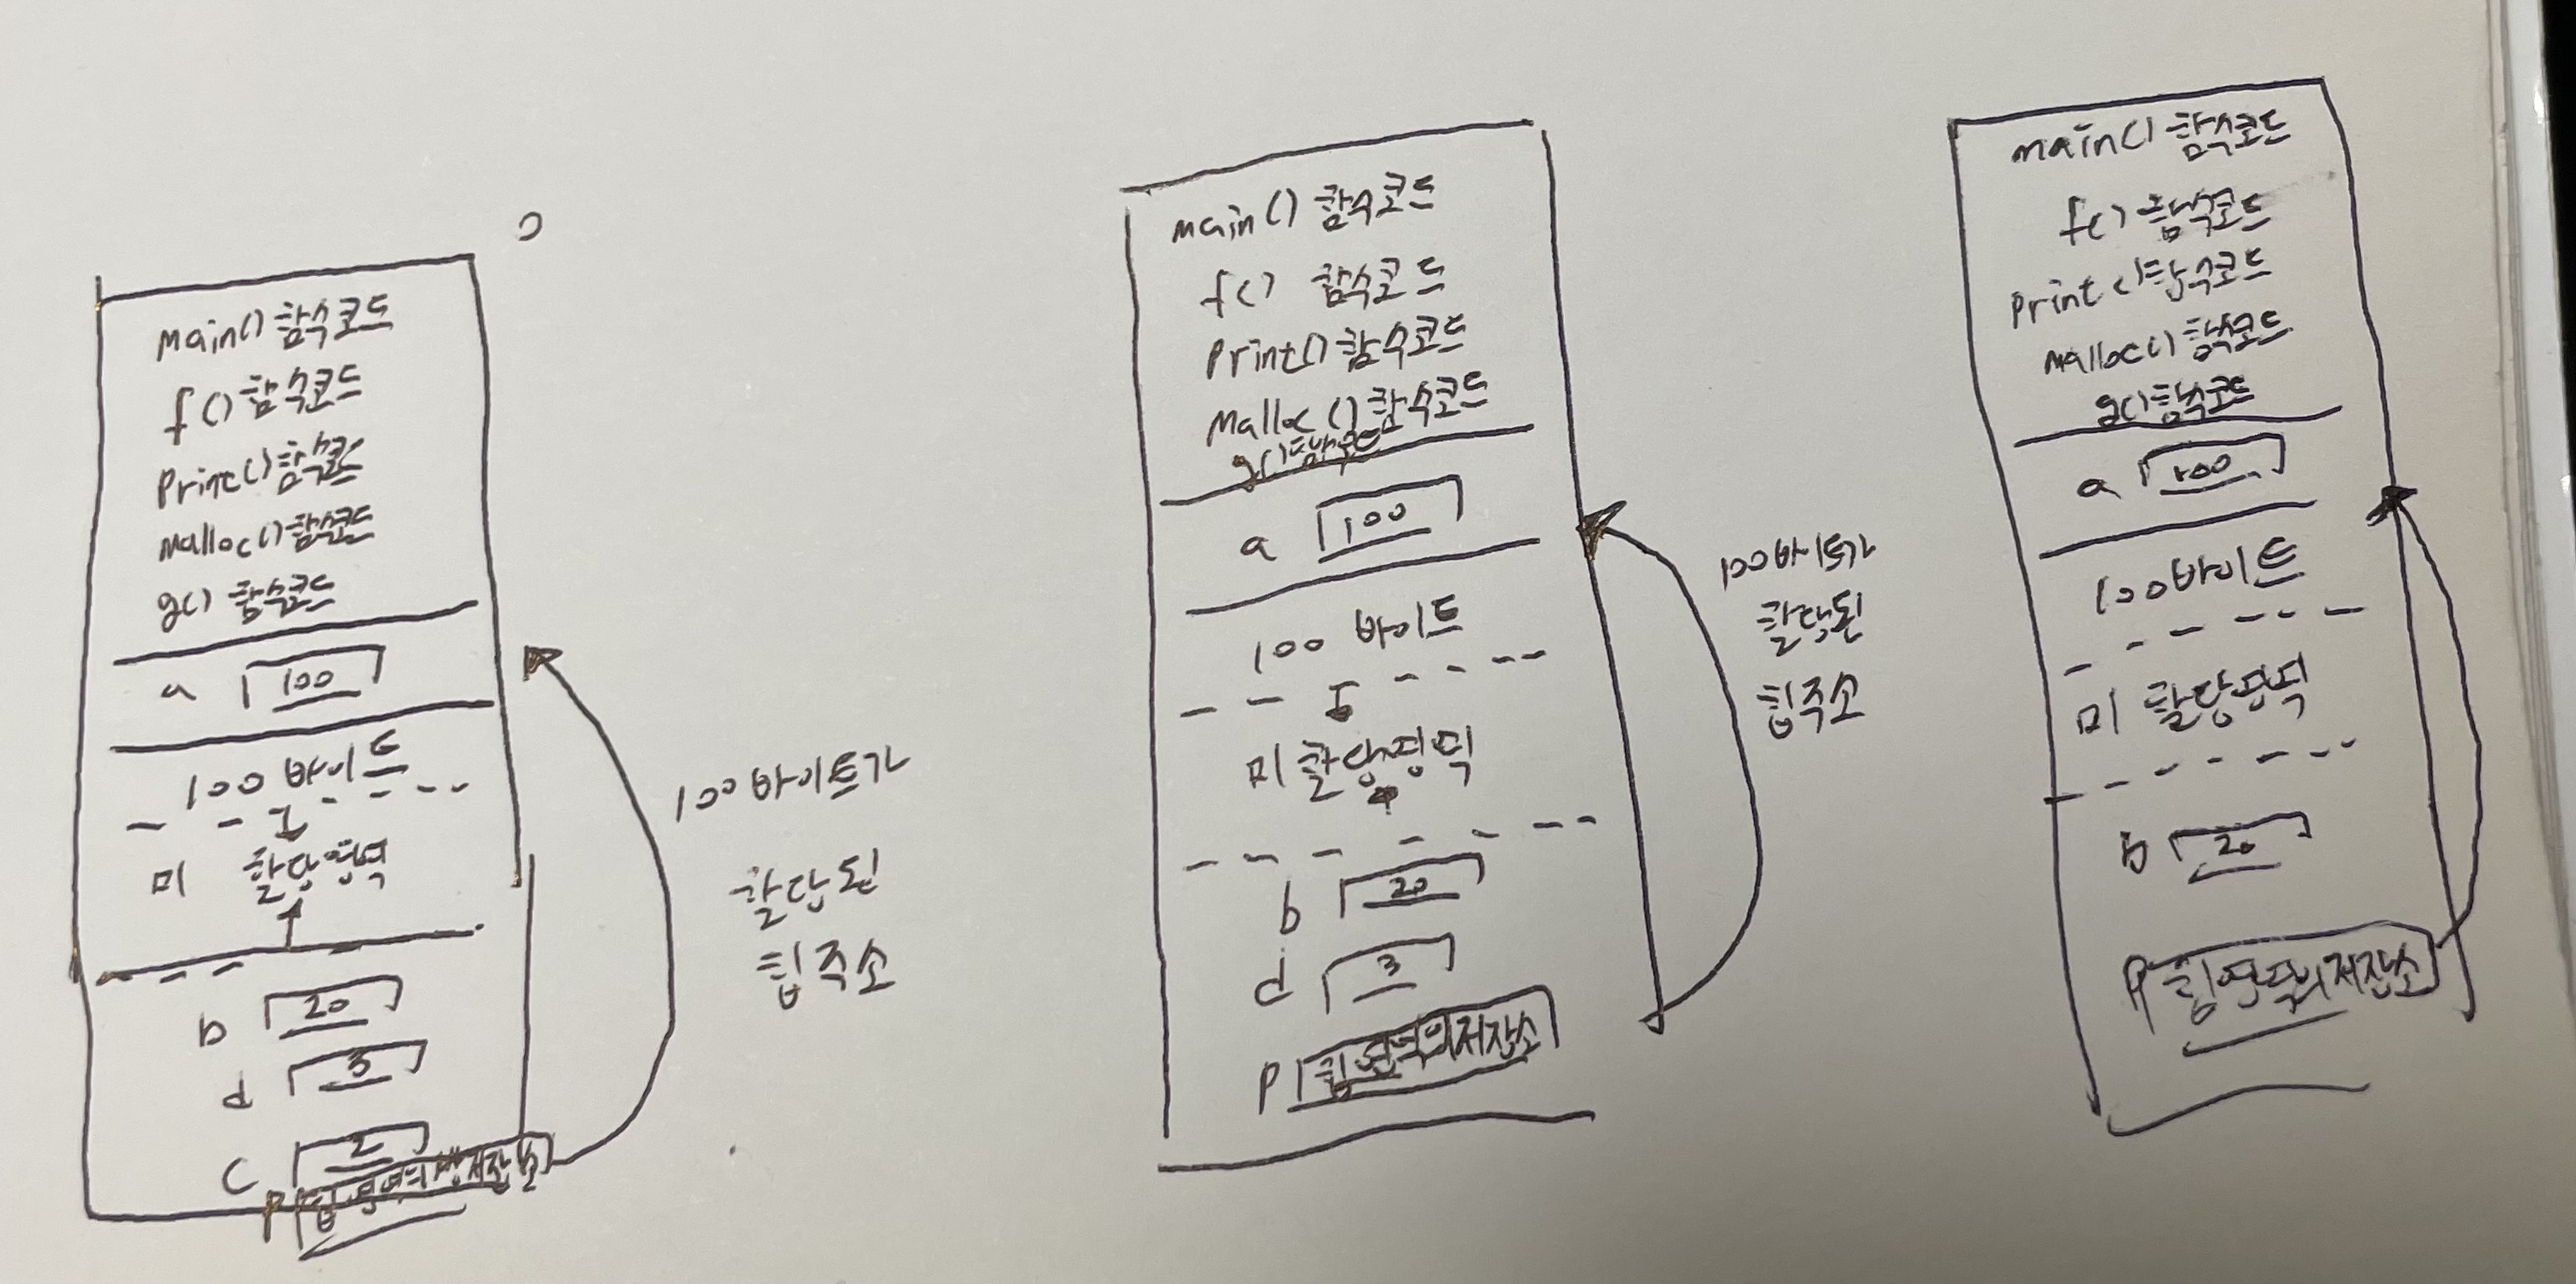 main() 함수코드
f() 함수코드
Print() 함수코드
Malloc() 함수코드
g() 함수코드
a 100
100 바이트
미 할당영역
b 20
d 3
c 2
P
100바이트가
할당된
힙주소
main() 함수코드
f() 함수코드
Print() 함수코드
Malloc() 함수코드
g() 함수코드
a 100
100 바이트
미 할당영역
b 20
d 3
P 힙영역의저장소
100바이트가
할당된
힙주소
main() 함수코드
f() 함수코드
Print() 함수코드
Malloc() 함수코드
g() 함수코드
a 100
100바이트
미 할당영역
b 20
P 힙영역의저장소